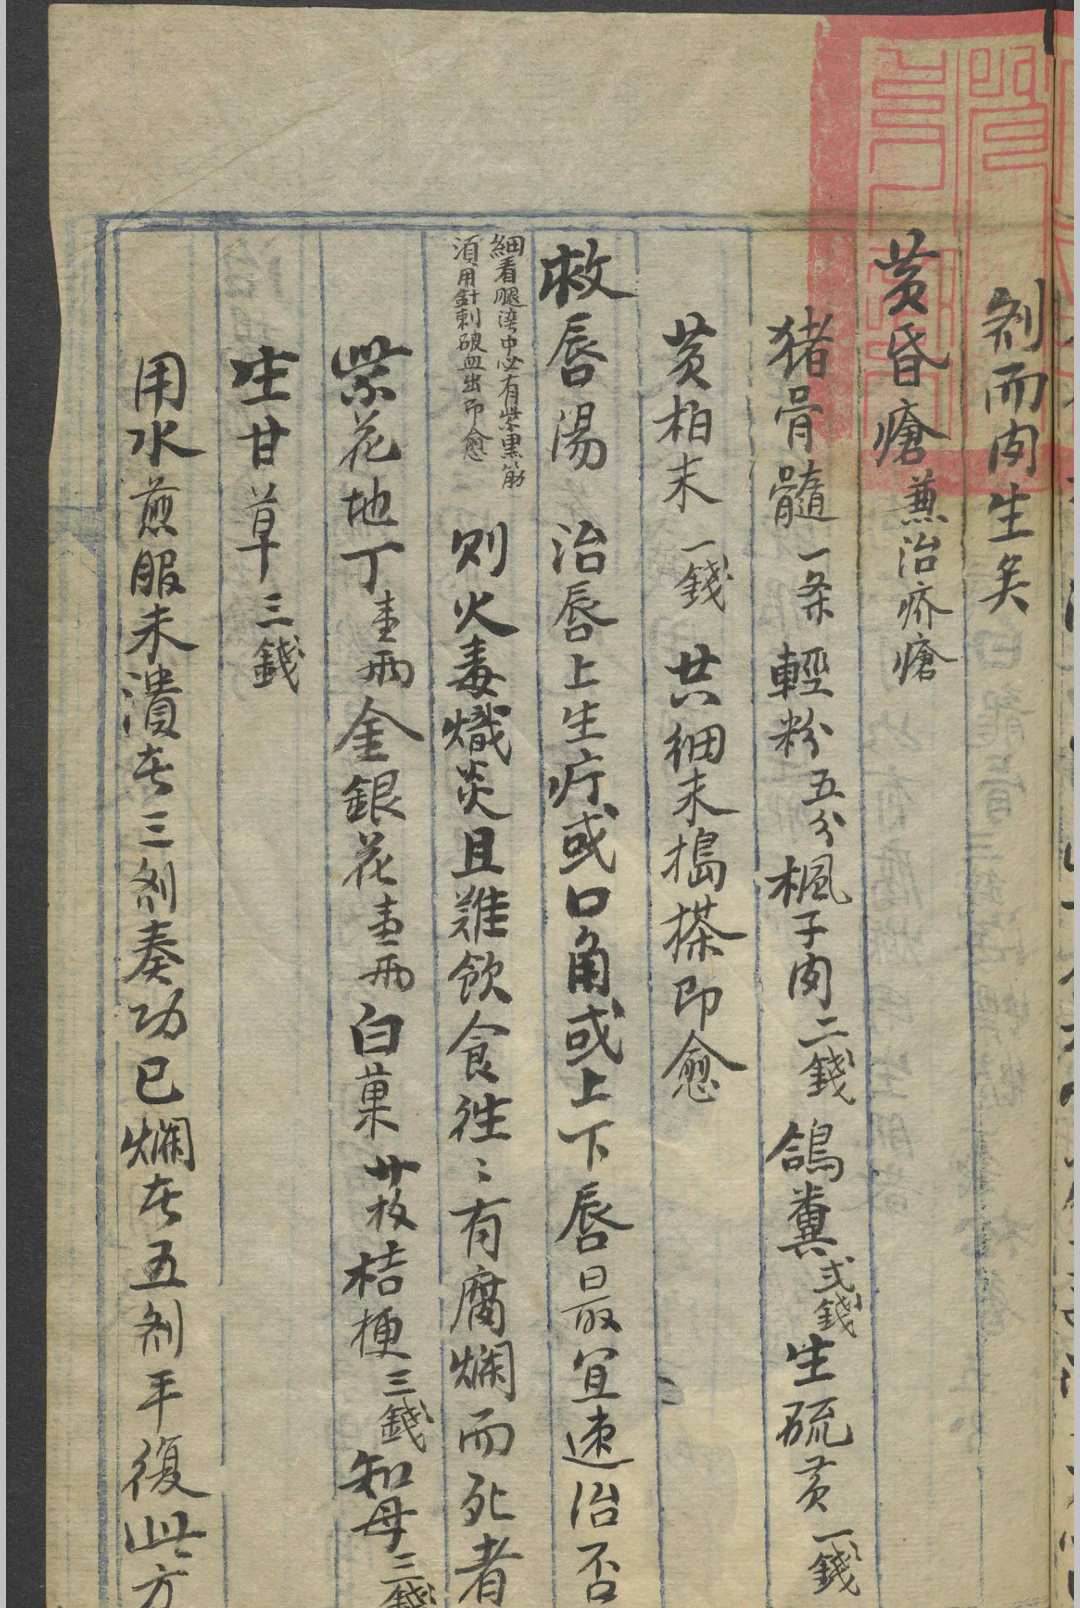 剂而肉生矣
黄昏瘡 兼治疥瘡
猪骨髓 一条 輕粉 五分 楓子肉 二錢 鴿糞 弍錢 生硫黄 一錢
黄柏末 一錢 共細末搗搽即愈
救唇湯 治唇上生疔或口角或上下唇最宜速治否
細看腿湾中心有紫黑筋
須用針刺破血出即愈
则火毒熾炎且難飲食往〻有腐爛而死者
紫花地丁 壹両 金銀花 壹両 白菓 廿枚 桔梗 三錢 知母 三錢
生甘草 三錢
用水煎服未潰者三剂奏功已爛者五剂平復此方